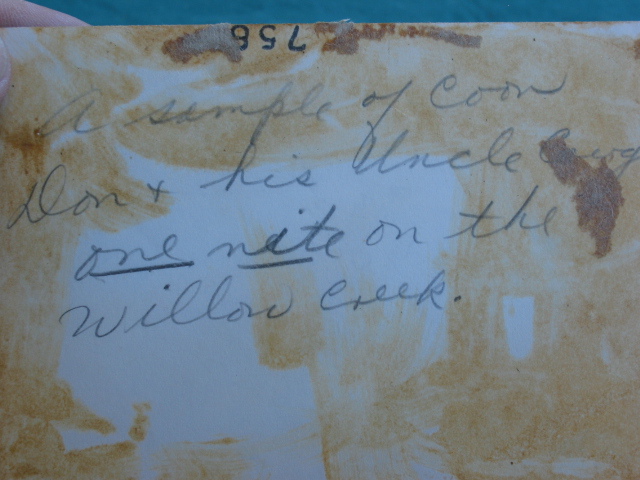 756
A sample of Coon
Don + his Uncle
one nite on the
Willow Creek.